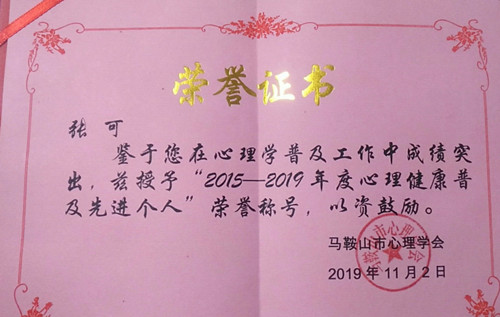 荣誉证书
张可
鉴于您在心理学普及工作中成绩突
出，兹授予“2015—2019年度心理健康普
及先进个人”荣誉称号，以资鼓励。
马鞍山市心理学会
2019年11月2日